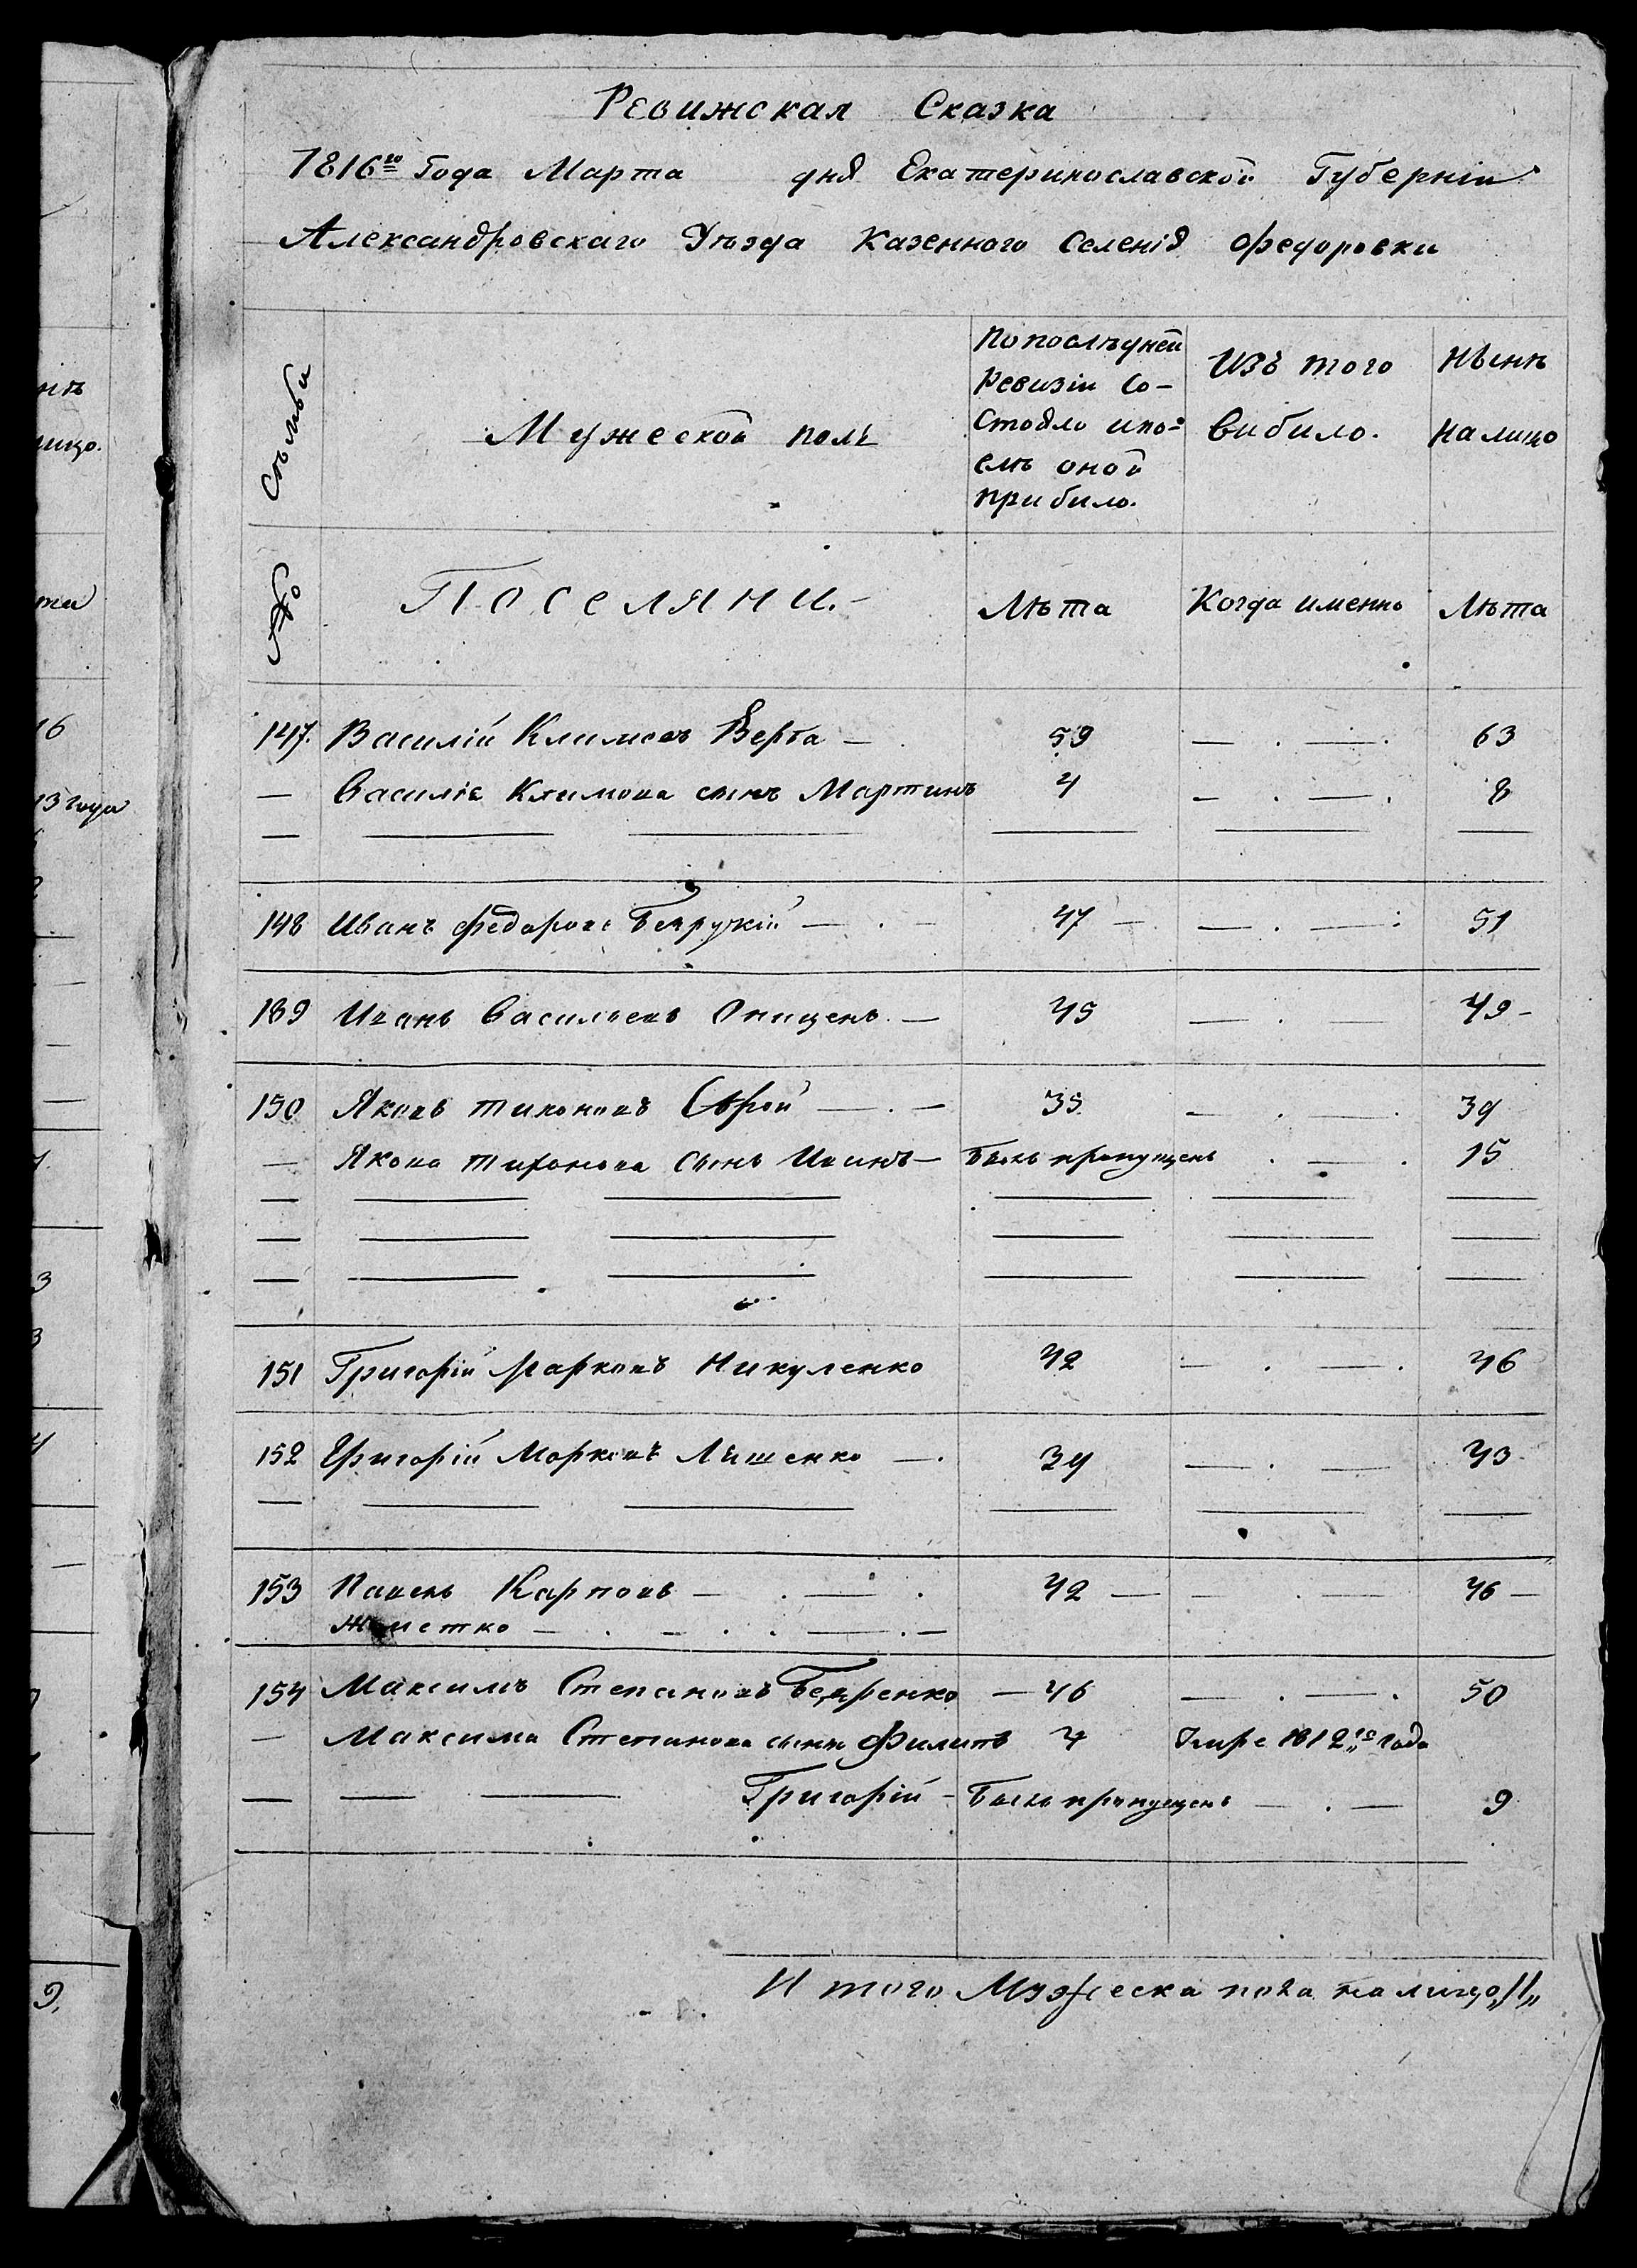 Ревижская Сказка
1816го Года Марта дня Екатеринославской Губерніи
Александровскаго Уѣзда Казенного Селенія Федоровки
Мужеской полъ
Попослѣдней
Ревизіи Со-
стояло ипо-
слѣ оной
прибило.
Изъ того
Вибило.
Нынѣ
Налицо
№
Поселяни.
Лѣта
Когда именно
Лѣта
147. Василій Климовъ Верба — 59 — . — . 63
— Василія Климова синъ Мартинъ 4 — . — . 8
148 Иванъ Федоровъ — . — 47 — — . — : 51
189 Иванъ Васильевъ Онищенъ — 45 — . — 49 -
150 Яковъ тихоновъ Сѣрой — . — 35 — . — . 39
— Якова тихонова Сынъ Иванъ — Былъ пропущенъ . — . 15
151 Григорій Марковъ Никуленко 42 — . — . 46
152 Григорій Марковъ Ляшенко — . 39 — . — 43
153 Павелъ Карповъ — . — . 42 — — . — 46 —
154 Максимъ Степановъ — 46 — . — . 50
— Максима Степанова сынъ Филипъ 4 Умре 1812го года
— — — Григорій - Былъ пропущенъ — . — 9
И того Мужеска пола на лицо „11„
16
13 года
3
3
4
9,